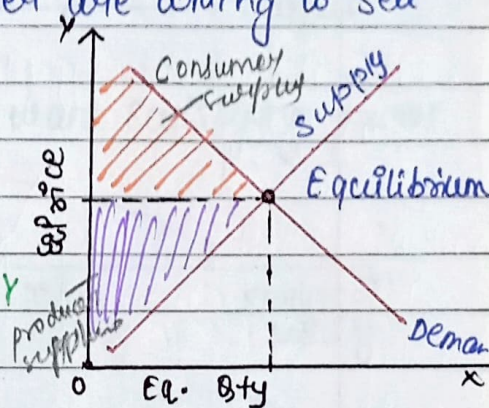 are willing to sell
Y
Consumer
surplus
Supply
Equilibrium
Price
Y
producer
surplus
Deman
0
Eq. Qty
X